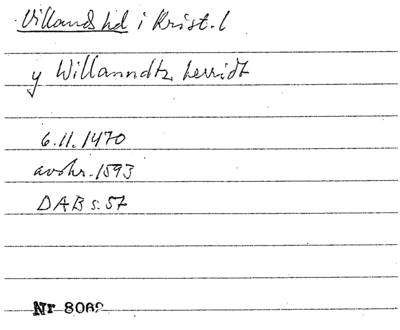 Villands hd i Krist. l
y Willanndtz herridt
6.11.1470
avskr. 1593
DAB s. 57
Nr 8068